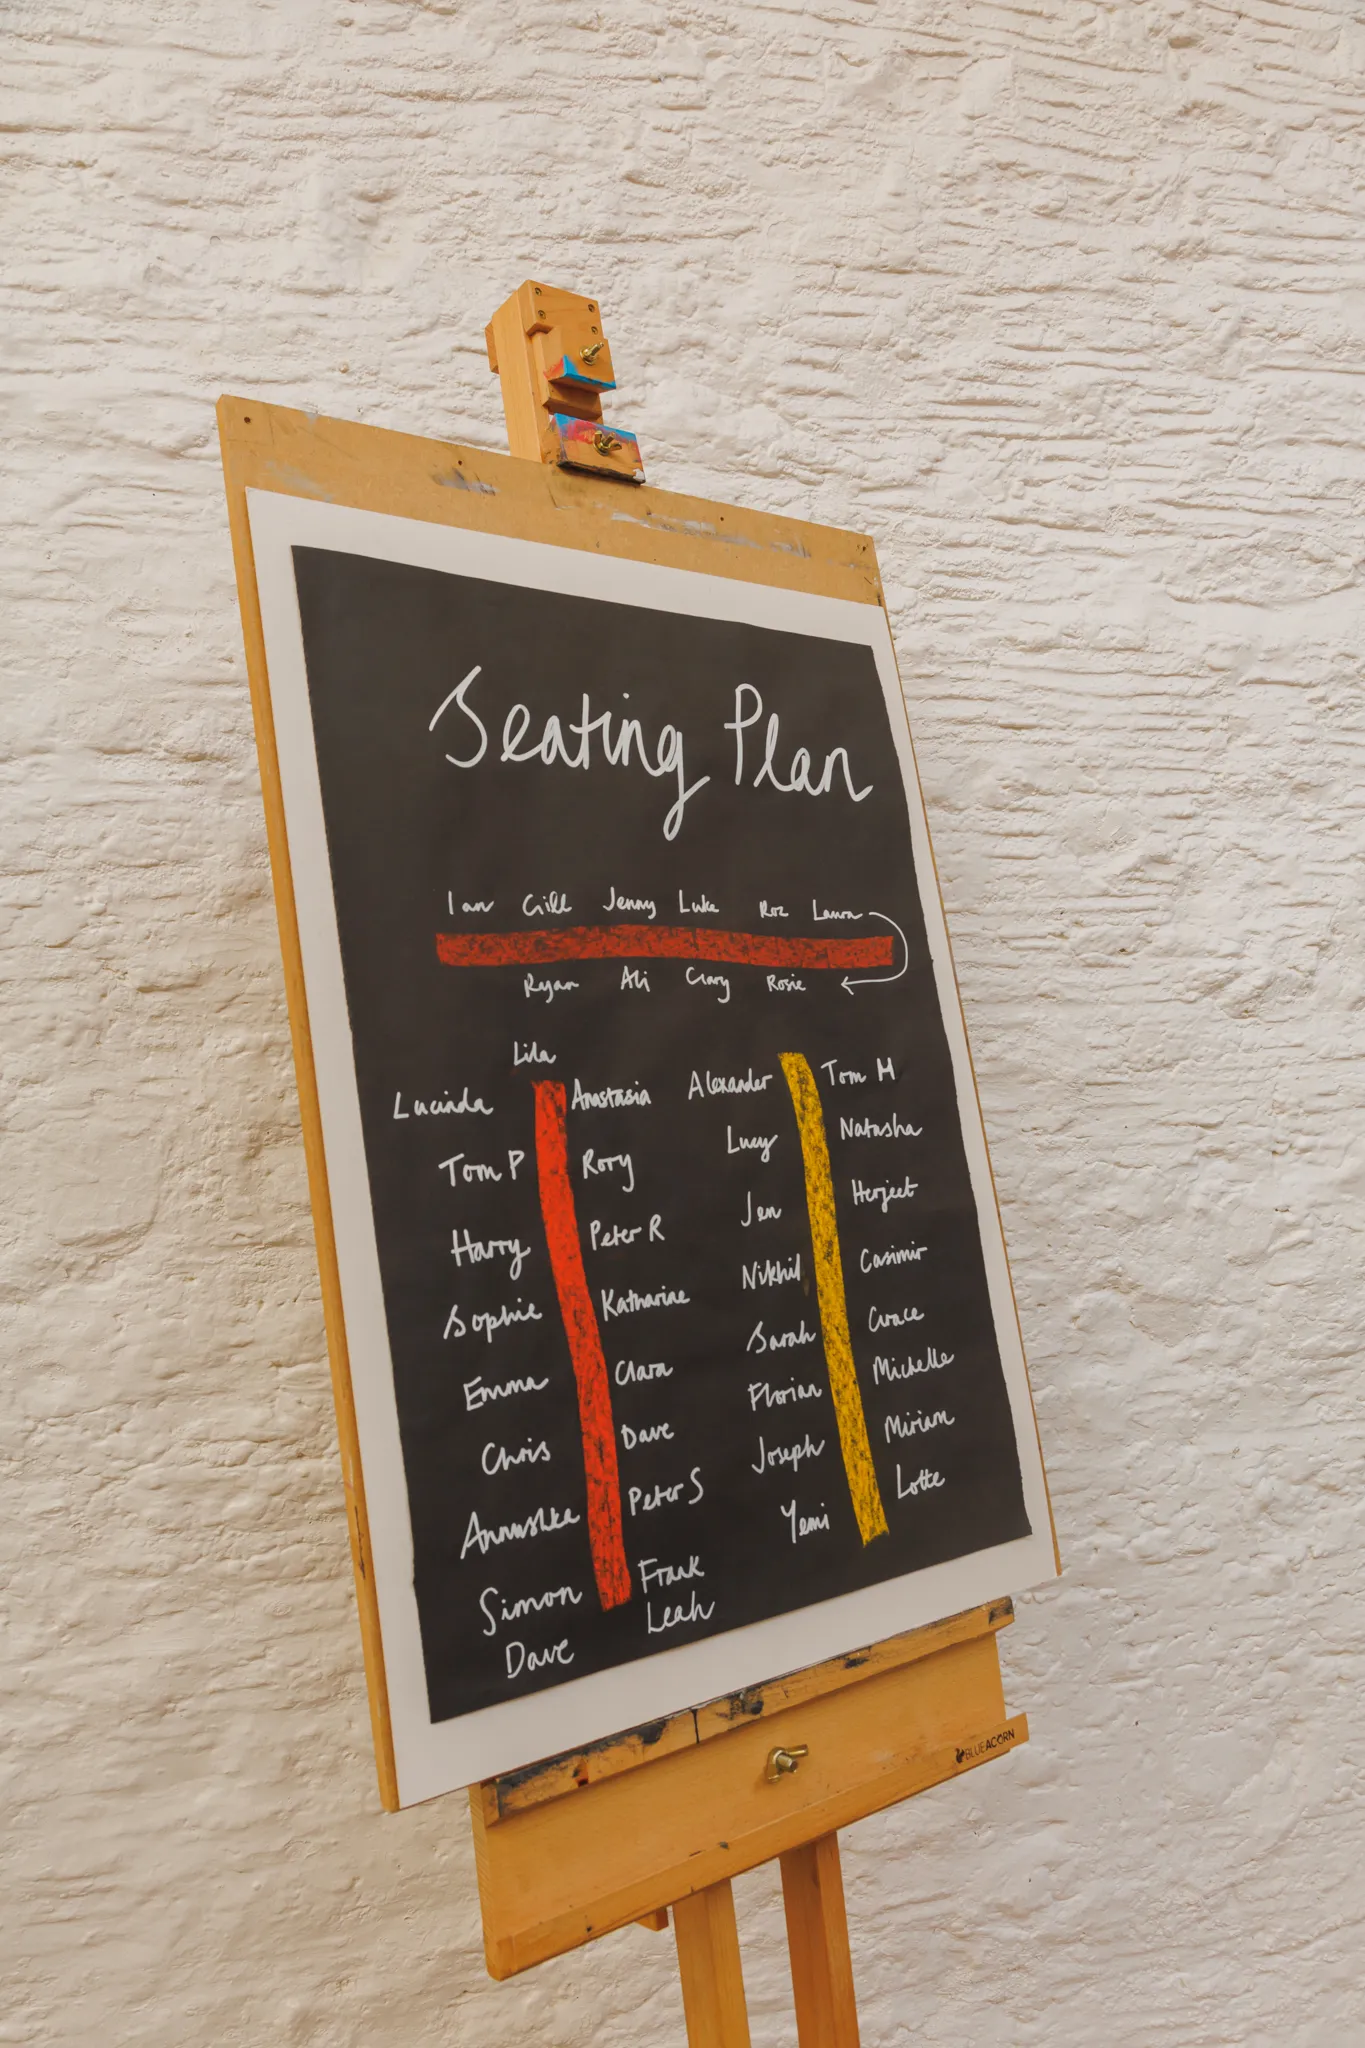 Seating Plan
Ian Gill Jenny Luke Roz Laura
Ryan Ali Gary Rosie
Lila
Lucinda Anastasia
Tom P Rory
Harry Peter R
Sophie Katharine
Emma Clara
Chris Dave
Annushka Peter S
Simon Frank
Dave Leah
Alexander Tom M
Lucy Natasha
Jen Herjeet
Nikhil Casimir
Sarah Grace
Florian Michelle
Joseph Miriam
Yemi Lotte
BLUEACORN